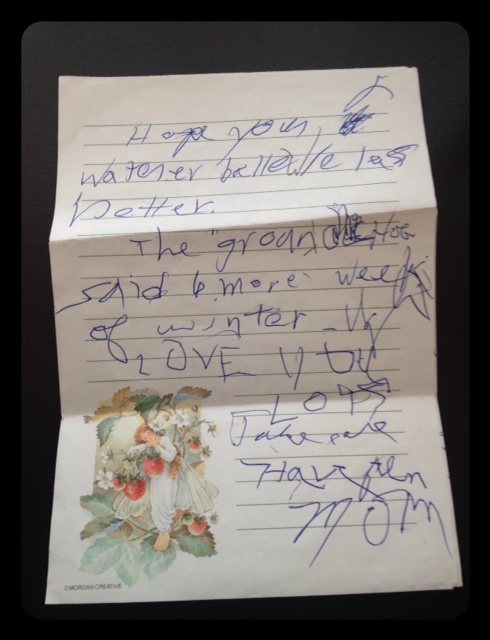 Hope your
watcher batterie las
better.
The "groun Hog
said 6 more weeks
of winter - Ug
LOVE YOU
LOTS
Take care
Have fun
MOM
©MORGAN CREATIVE